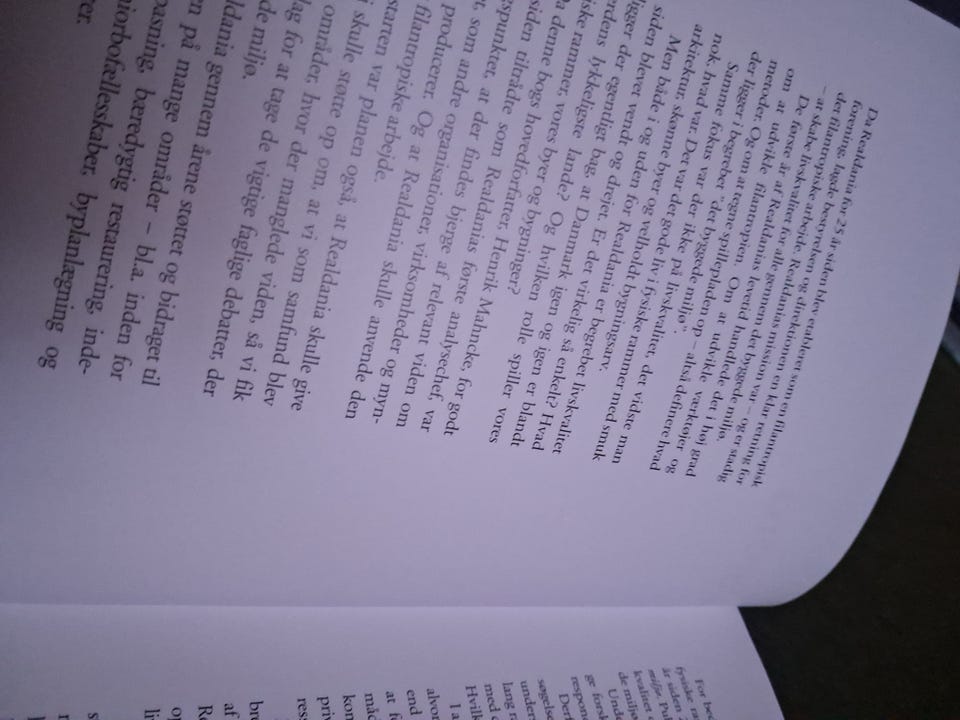 Da Realdania for 23 år siden blev etableret som en filantropisk
forening, lagde bestyrelsen og direktionen en klar retning for
det filantropiske arbejde. Realdanias mission var – og er stadig
– at skabe livskvalitet for alle gennem det byggede miljø.
De første år af Realdanias levetid handlede det i høj grad
om at udvikle filantropien. Om at udvikle værktøjer og
metoder. Og om at tegne spillepladen op – altså definere hvad
der ligger i begrebet "det byggede miljø".
Samme fokus var der ikke på livskvalitet, der vidste man
nok, hvad var. Det var det gode liv i fysiske rammer med smuk
arkitektur, skønne byer og velholdt bygningsarv.
Men både i og uden for Realdania er begrebet livskvalitet
siden blevet vendt og drejet. Er det virkelig så enkelt? Hvad
ligger der egentligt bag, at Danmark igen og igen er blandt
rdens lykkeligste lande? Og hvilken rolle spiller vores
ske rammer, vores byer og bygninger?
a denne bogs hovedforfatter, Henrik Mahncke, for godt
siden tiltrådte som Realdanias første analysechef, var
gspunktet, at der findes bjerge af relevant viden om
t, som andre organisationer, virksomheder og myn-
producerer. Og at Realdania skulle anvende den
filantropiske arbejde.
starten var planen også, at Realdania skulle give
i skulle støtte op om, at vi som samfund blev
områder, hvor der manglede viden, så vi fik
lag for at tage de vigtige faglige debatter, der
de miljø.
ldania gennem årene støttet og bidraget til
en på mange områder – bl.a. inden for
pasning, bæredygtig restaurering, inde-
iorbofællesskaber, byplanlægning og
rer.
For bed
fysiske ra
miljø. Pu
år siden
kvalitet o
de miljø
Und
ge forsk
respon
Derf
søgels
under
lang r
med
Hvil
I a
alvor
end
at f
måd
kon
priv
res
bre
af
Re
op
li
s
r
l